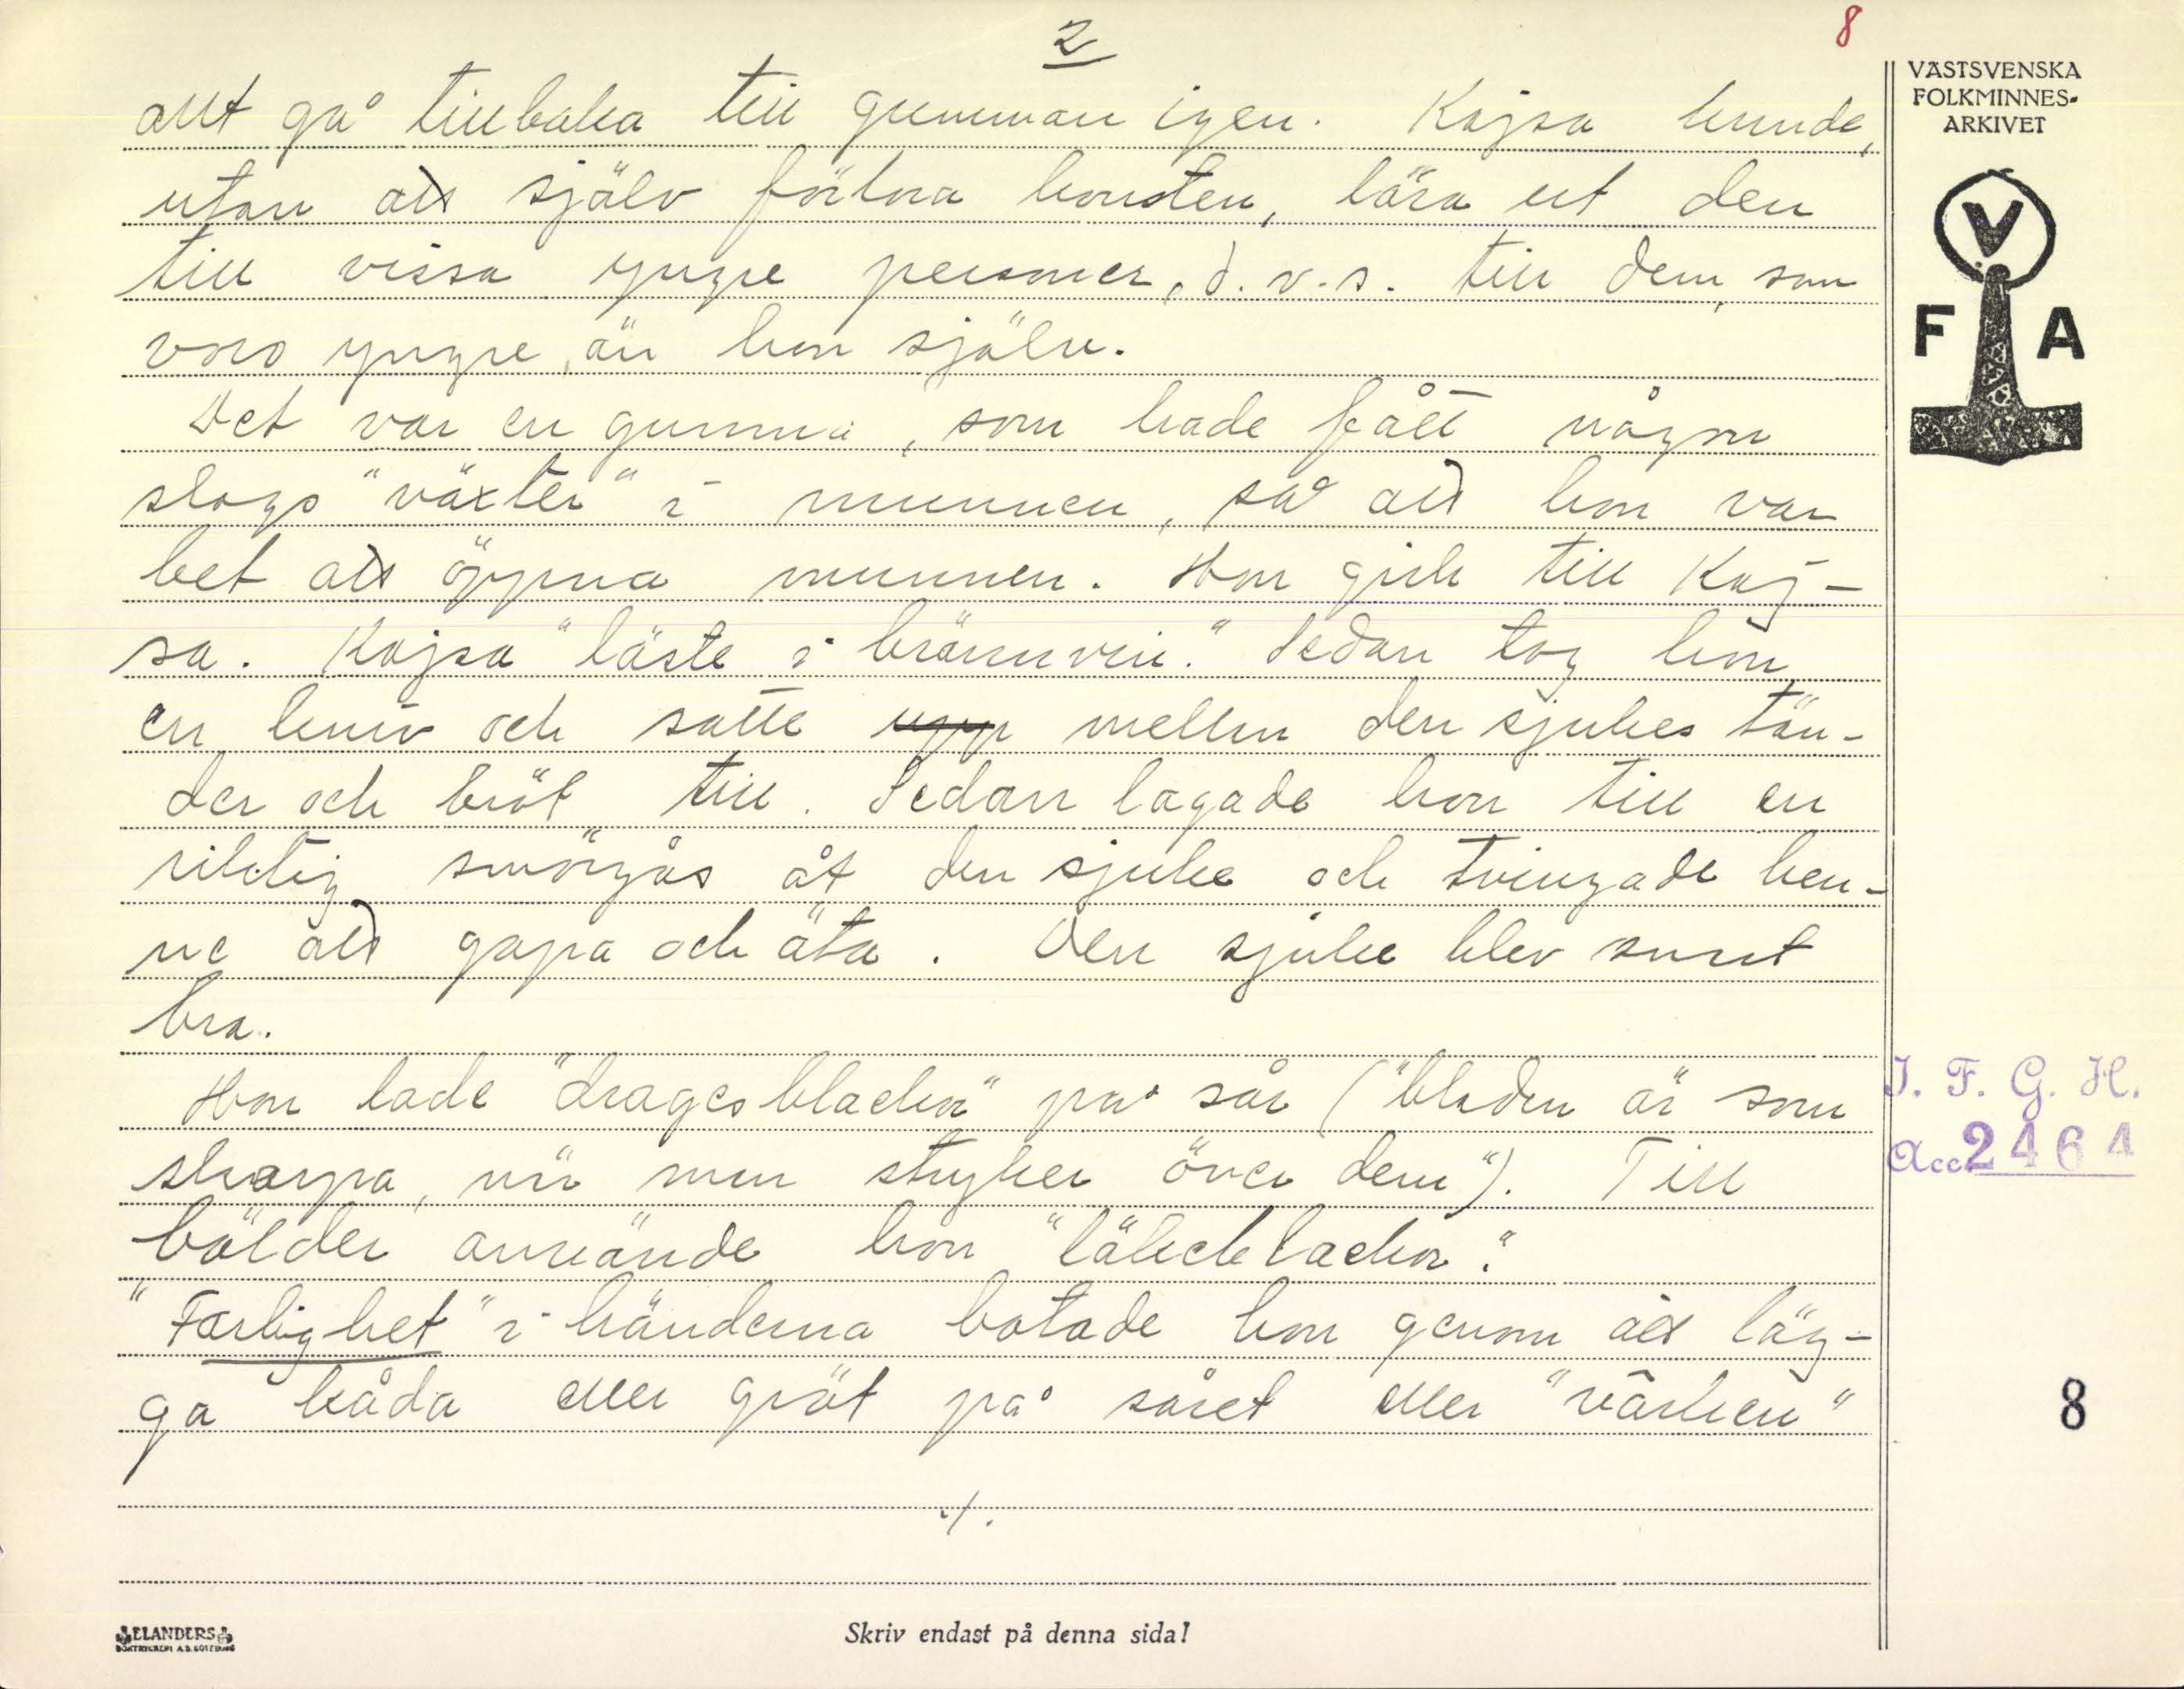 2
8
att gå tillbaka till gumman igen. Kajsa kunde,
utan att själv förlora konsten, lära ut den
till vissa yngre personer, d.v.s. till dem, som
voro yngre, än hon själv.
Det var en gumma, som hade fått någon
slags "växter" i munnen, så att hon var
het att öppna munnen. Hon gick till Kaj-
sa. Kajsa "läste i brännvin." Sedan tog hon
en kniv och satte upp mellan den sjukes tän-
der och bröt till. Sedan lagade hon till en
riktig smörgås åt den sjuke och tvingade hen-
ne att gapa och äta. Den sjuke blev snart
bra.
Hon lade "dragesblackor" på sår ("bladen är som
skarpa, när man stryker över dem"). Till
bölder använde hon "läkeblackor".
"Farlighet" i händerna botade hon genom att läg-
ga kåda eller gröt på såret eller "värken"
./.
VÄSTSVENSKA
FOLKMINNES-
ARKIVET
V
F A
I. F. G. H.
Acc. 2464
8
ELANDERS
BOKTRYCKERI A.B. GÖTEBORG
Skriv endast på denna sida!